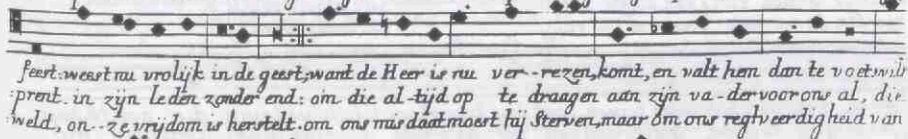 feest: weest nu vrolijk in de geest; want de Heer is nu ver--rezen, komt, en valt hem dan te voet wilt
:prent. in zijn leden zonder end: om die al-tijd op te draagen aan zijn va-der voor ons al, die
weld, on--ze vrijdom is herstelt. om ons misdaat moest hij Sterven, maar om ons regtveerdigheid van